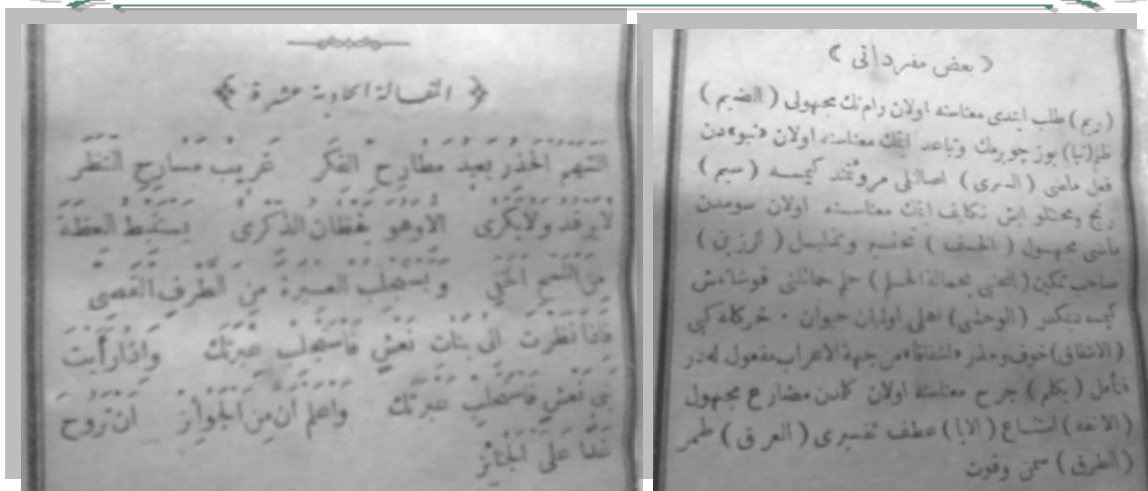 ( بعض مفرداتی )
(ریم) طلب ایتدی معناسنه اولان رامك مجهولی ( الضیم )
ظلم (نبا) یوز چویرمك وتباعد ایتمك معناسنه اولان «نبو» دن
فعل ماضی ( السری ) اصالتلی مروتمند کیمسه ( سیم )
رنج ومحنتلو ایش تکلیف ایتمك معناسنه اولان سومدن
ماضی مجهول ( الخسف ) تحقیر وتذلیل ( الرزین )
صاحب تمکین ( المحتبی بحمالة الحلم ) حلم حمائلنی قوشانمش
کیمسه دیمکدر (الوحشی) اهلی اولیان حیوان ۰ خرکله کبی
(الاشفاق) خوف وحذر «اشفاقا» من جهة الاعراب مفعول له در
فتأمل ( یکلم ) جرح معناسنه اولان کلمدن مضارع مجهول
(الانفه) امتناع (الابا) عطف تفسیری ( العرق ) طمر
(الطرق) سمن وقوت
﴿ المقالة الحادية عشرة ﴾
الشَّهْمُ الْحَذِرُ بَعِيدُ مَطَارِحِ الْفِكَرِ غَرِيبُ مَسَارِحِ النَّظَرِ
لَا يَرْقُدُ وَلَا يَكْرَى الا وَهُوَ يَقْظَانُ الذِّكْرَى يَسْتَنْبِطُ الْعِظَةَ
مِنَ اللَّمْحِ الْخَفِيِّ وَيَسْتَجْلِبُ الْعِبْرَةَ مِنَ الطَّرَفِ الْقَصِيِّ
فَاِذَا نَظَرْتَ اِلَى بَنَاتِ نَعْشٍ فَاسْتَجْلِبْ عِبْرَتَكَ وَاِذَا رَأَيْتَ
بَنِي نَعْشٍ فَاسْتَحْلِبْ عَبْرَتَكَ وَاعْلَمْ اَنَّ مِنَ الْجَوَائِزِ اَنْ تَرُوحَ
غَدًا عَلَى الْجَنَائِزِ